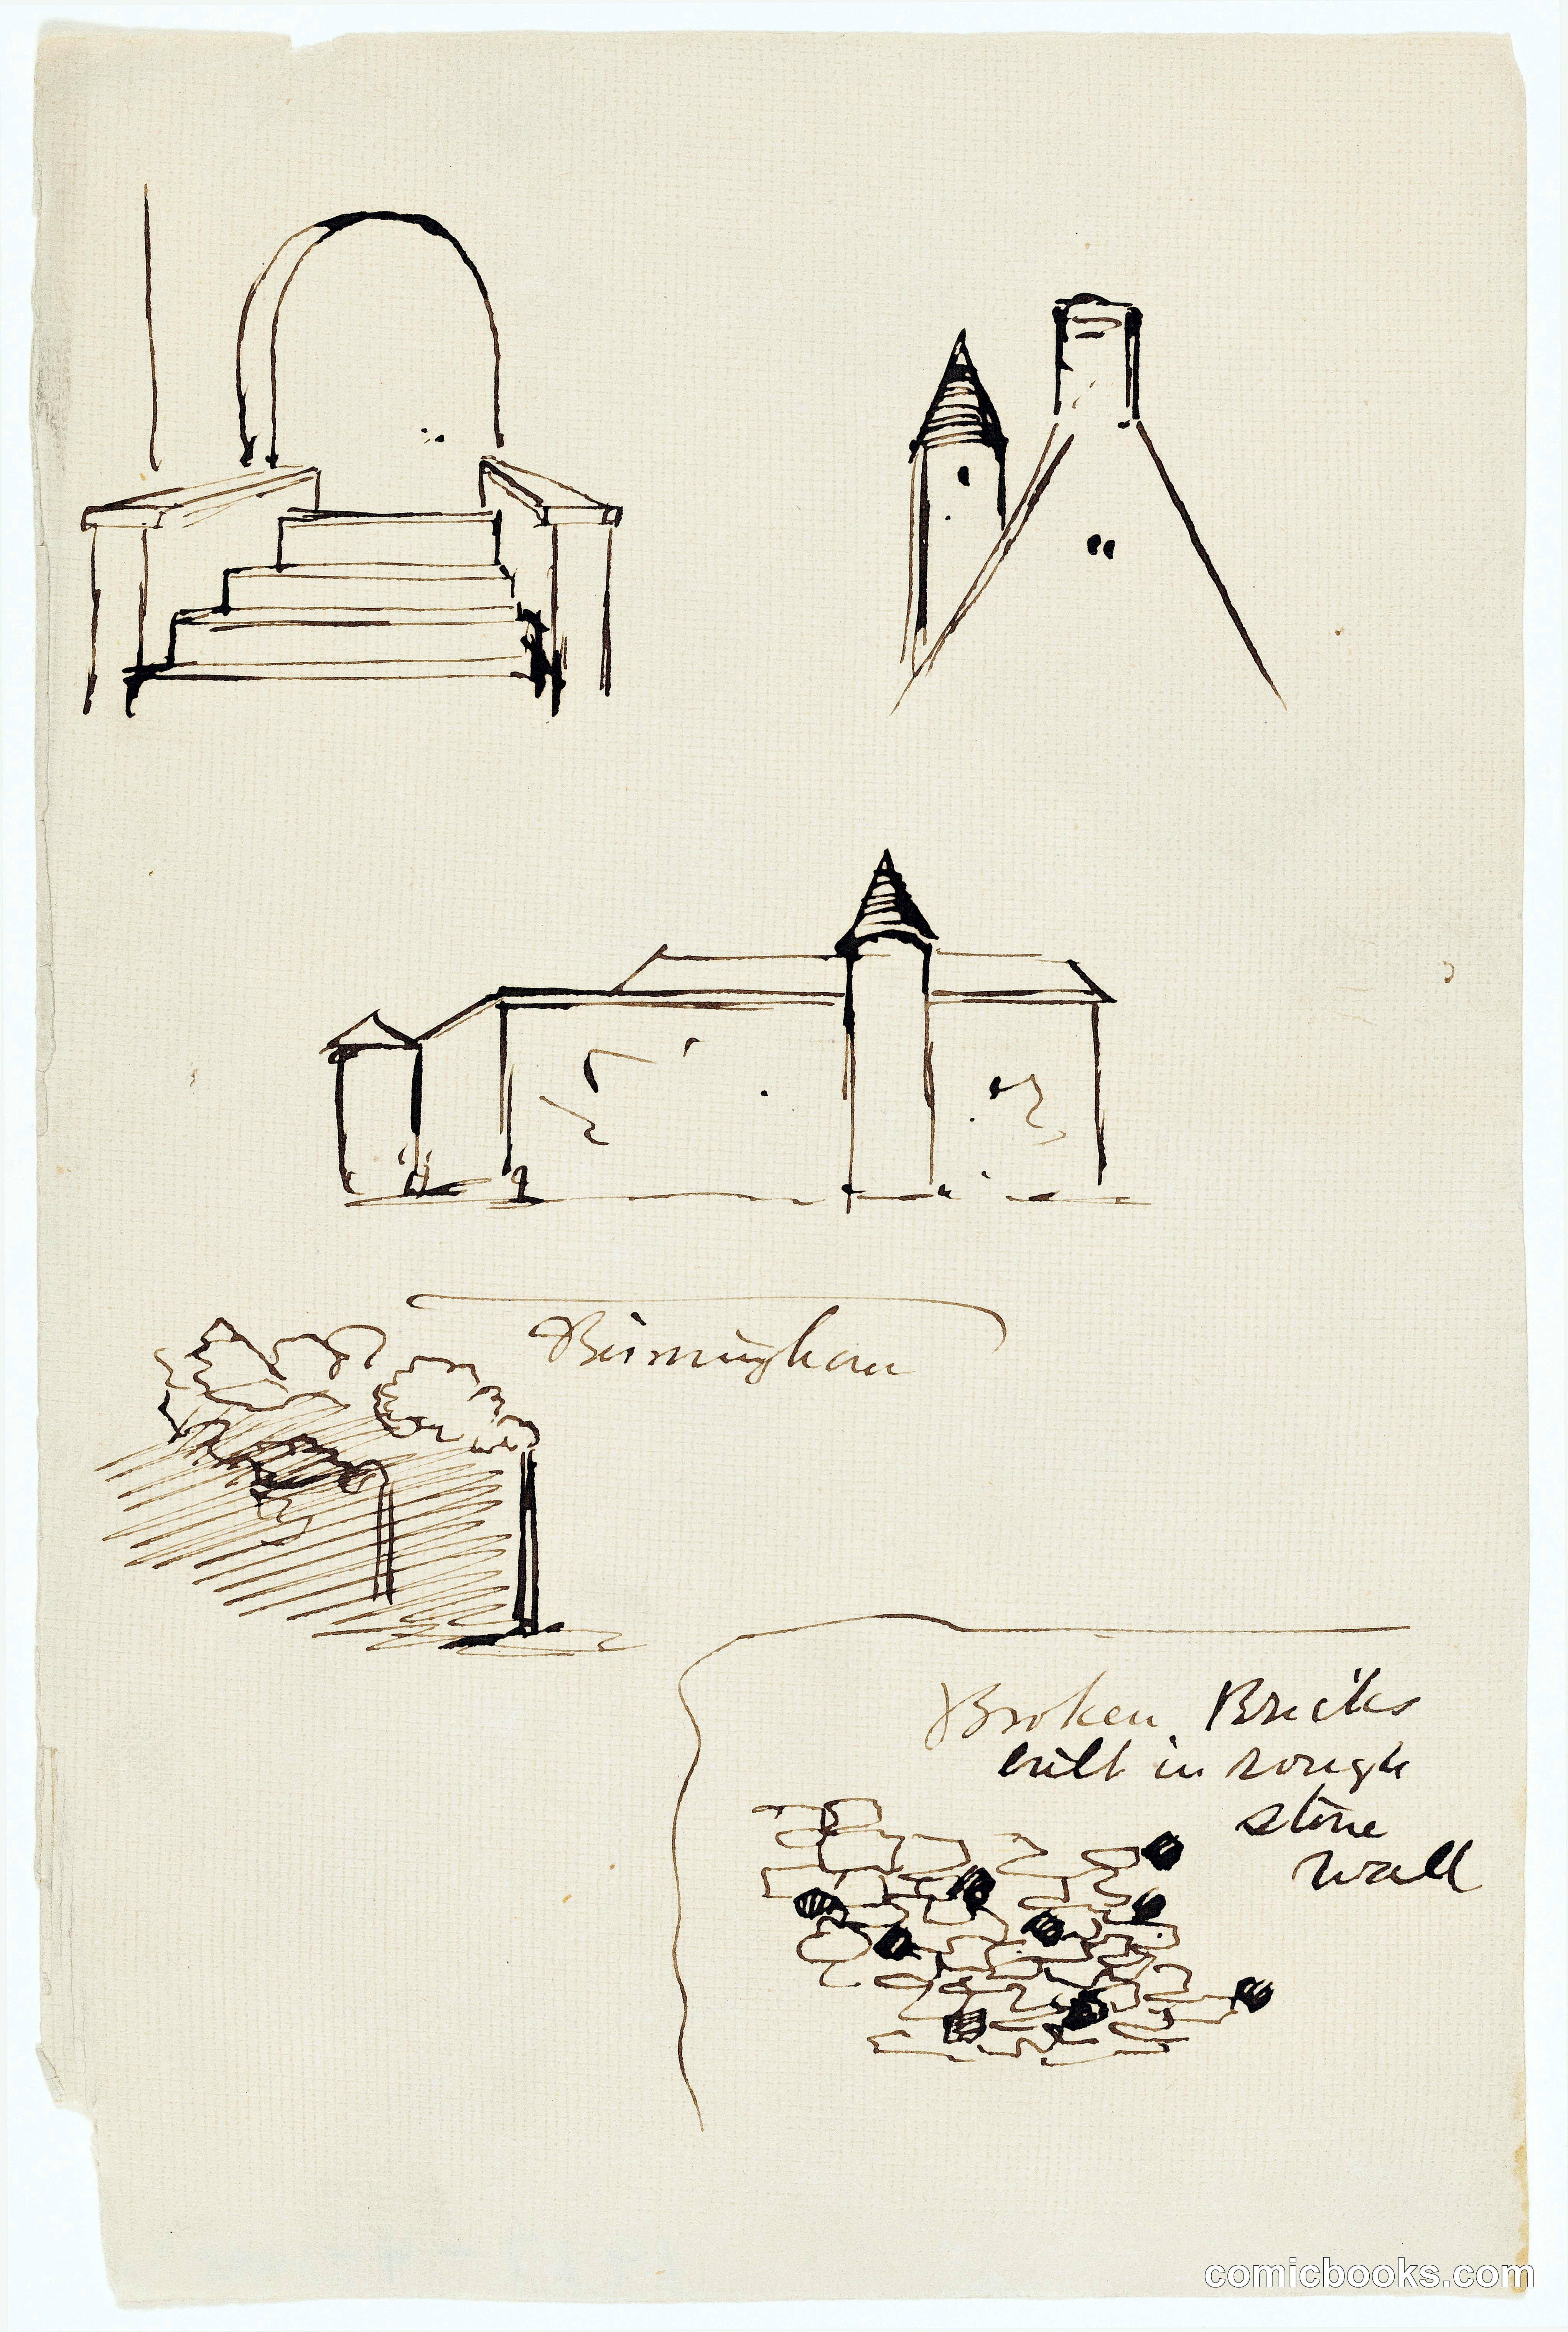 Birmingham
Broken Bricks
built in rough
stone
wall
comicbooks.com